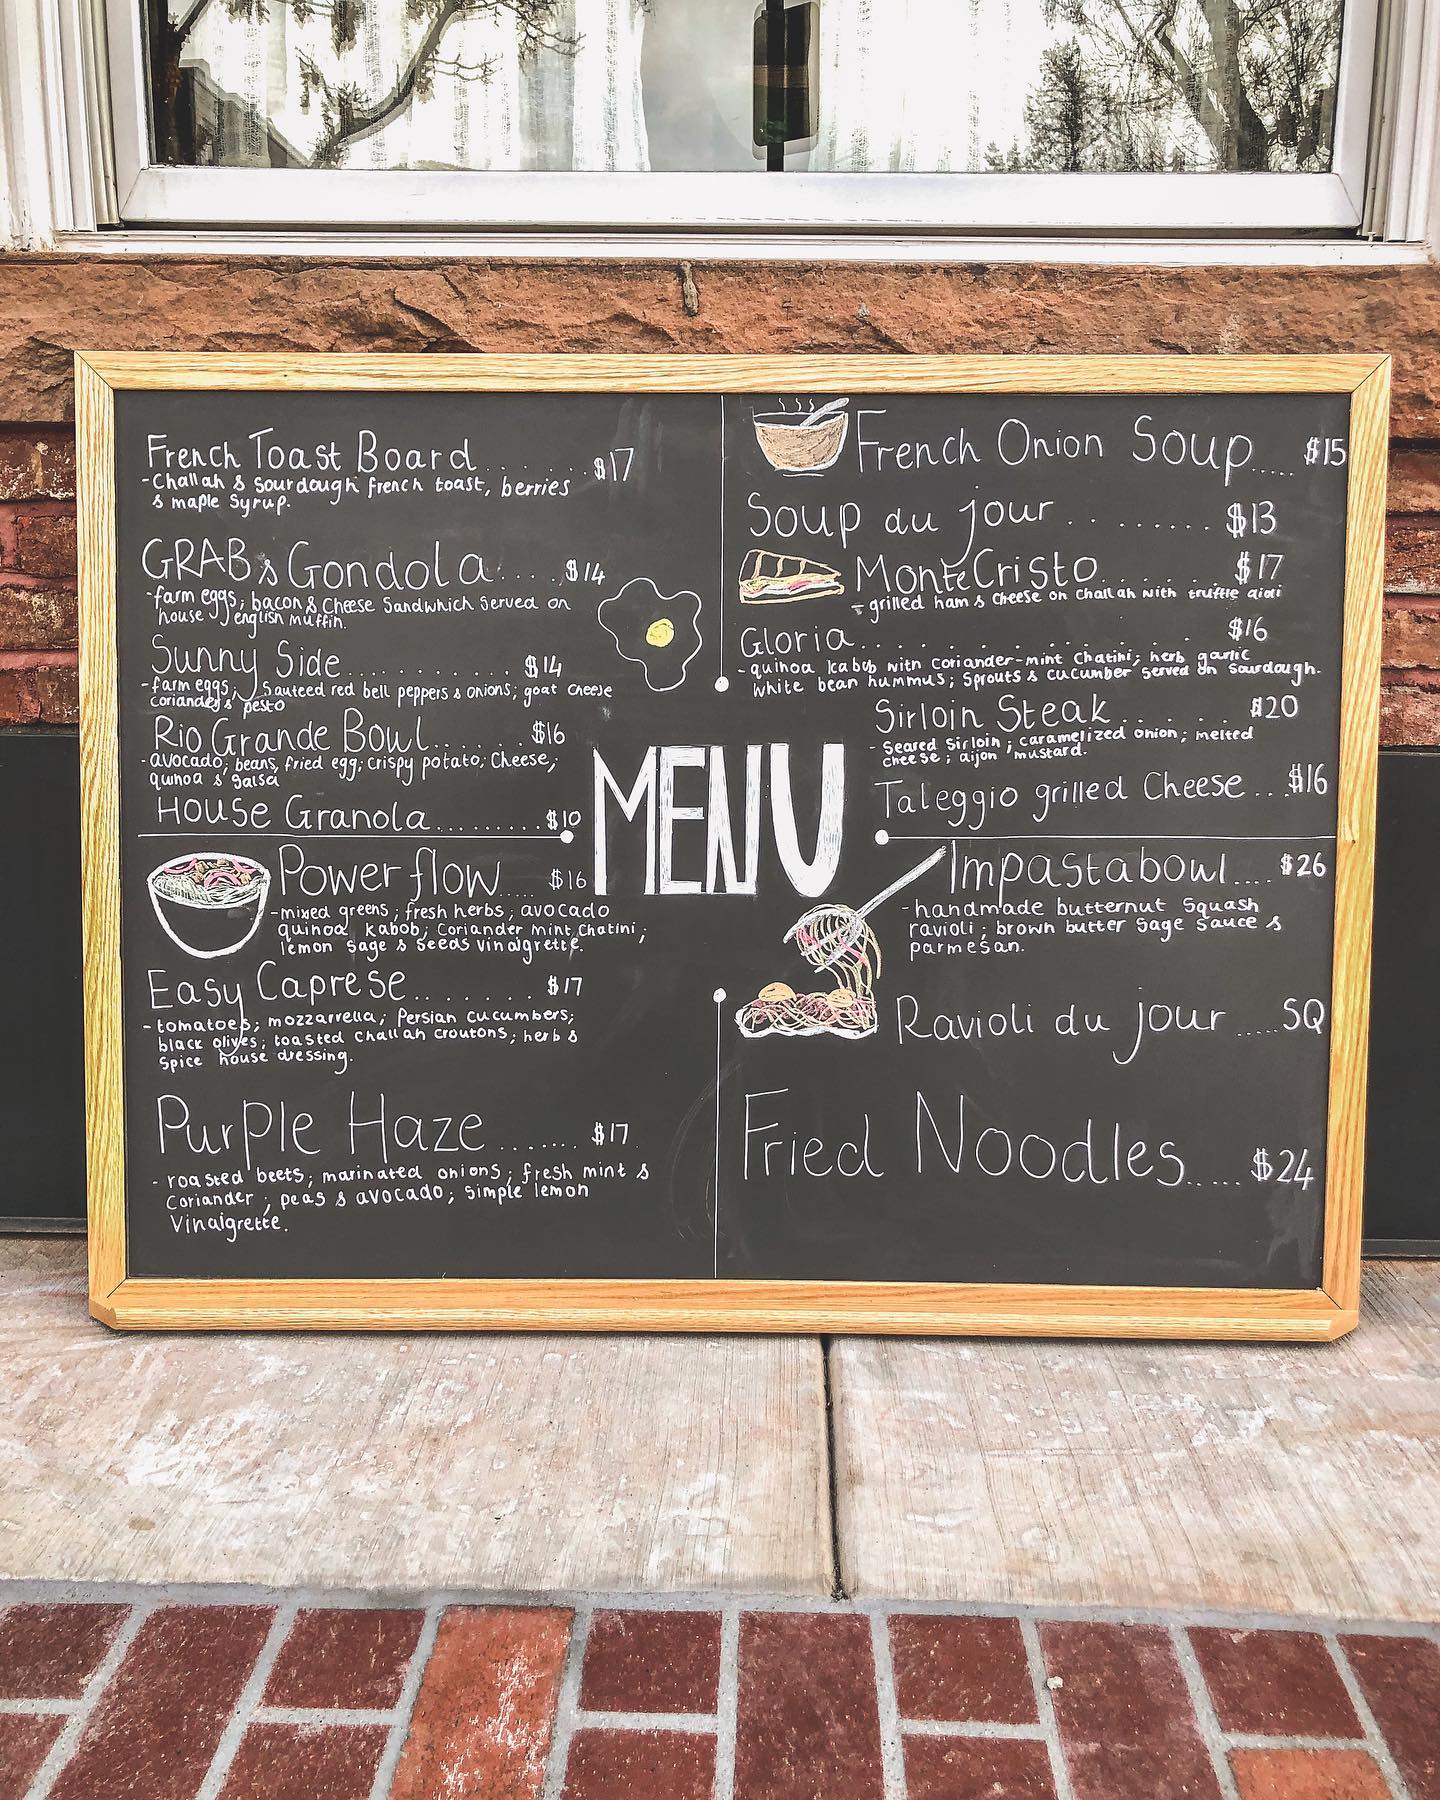 French Toast Board ...... $17
-challah & sourdough french toast, berries
& maple syrup.
GRAB & Gondola ..... $14
-farm eggs; bacon & cheese sandwhich served on
house english muffin.
Sunny Side ............ $14
-farm eggs; sauteed red bell peppers & onions; goat cheese
coriander & pesto
Rio Grande Bowl ....... $16
-avocado; beans, fried egg; crispy potato; cheese;
quinoa & salsa
House Granola ......... $10
Power flow .... $16
-mixed greens; fresh herbs; avocado
quinoa kabob; coriander mint chatini;
lemon sage & seeds vinaigrette.
Easy Caprese ........ $17
-tomatoes; mozzarrella; Persian cucumbers;
black olives; toasted challah croutons; herb &
spice house dressing.
Purple Haze ....... $17
- roasted beets; marinated onions; fresh mint &
coriander; peas & avocado; simple lemon
vinaigrette.
MENU
French Onion Soup ..... $15
Soup du jour ......... $13
Monte Cristo ....... $17
- grilled ham & cheese on challah with truffle aioli
Gloria ............ $16
- quinoa kabob with coriander-mint chatini; herb garlic
white bean hummus; sprouts & cucumber served on sourdough.
Sirloin Steak ...... $20
- Seared Sirloin; caramelized onion; melted
cheese; dijon mustard.
Taleggio grilled Cheese ... $16
Impastabowl .... $26
-handmade butternut squash
ravioli; brown butter sage sauce &
parmesan.
Ravioli du jour ..... SQ
Fried Noodles ..... $24